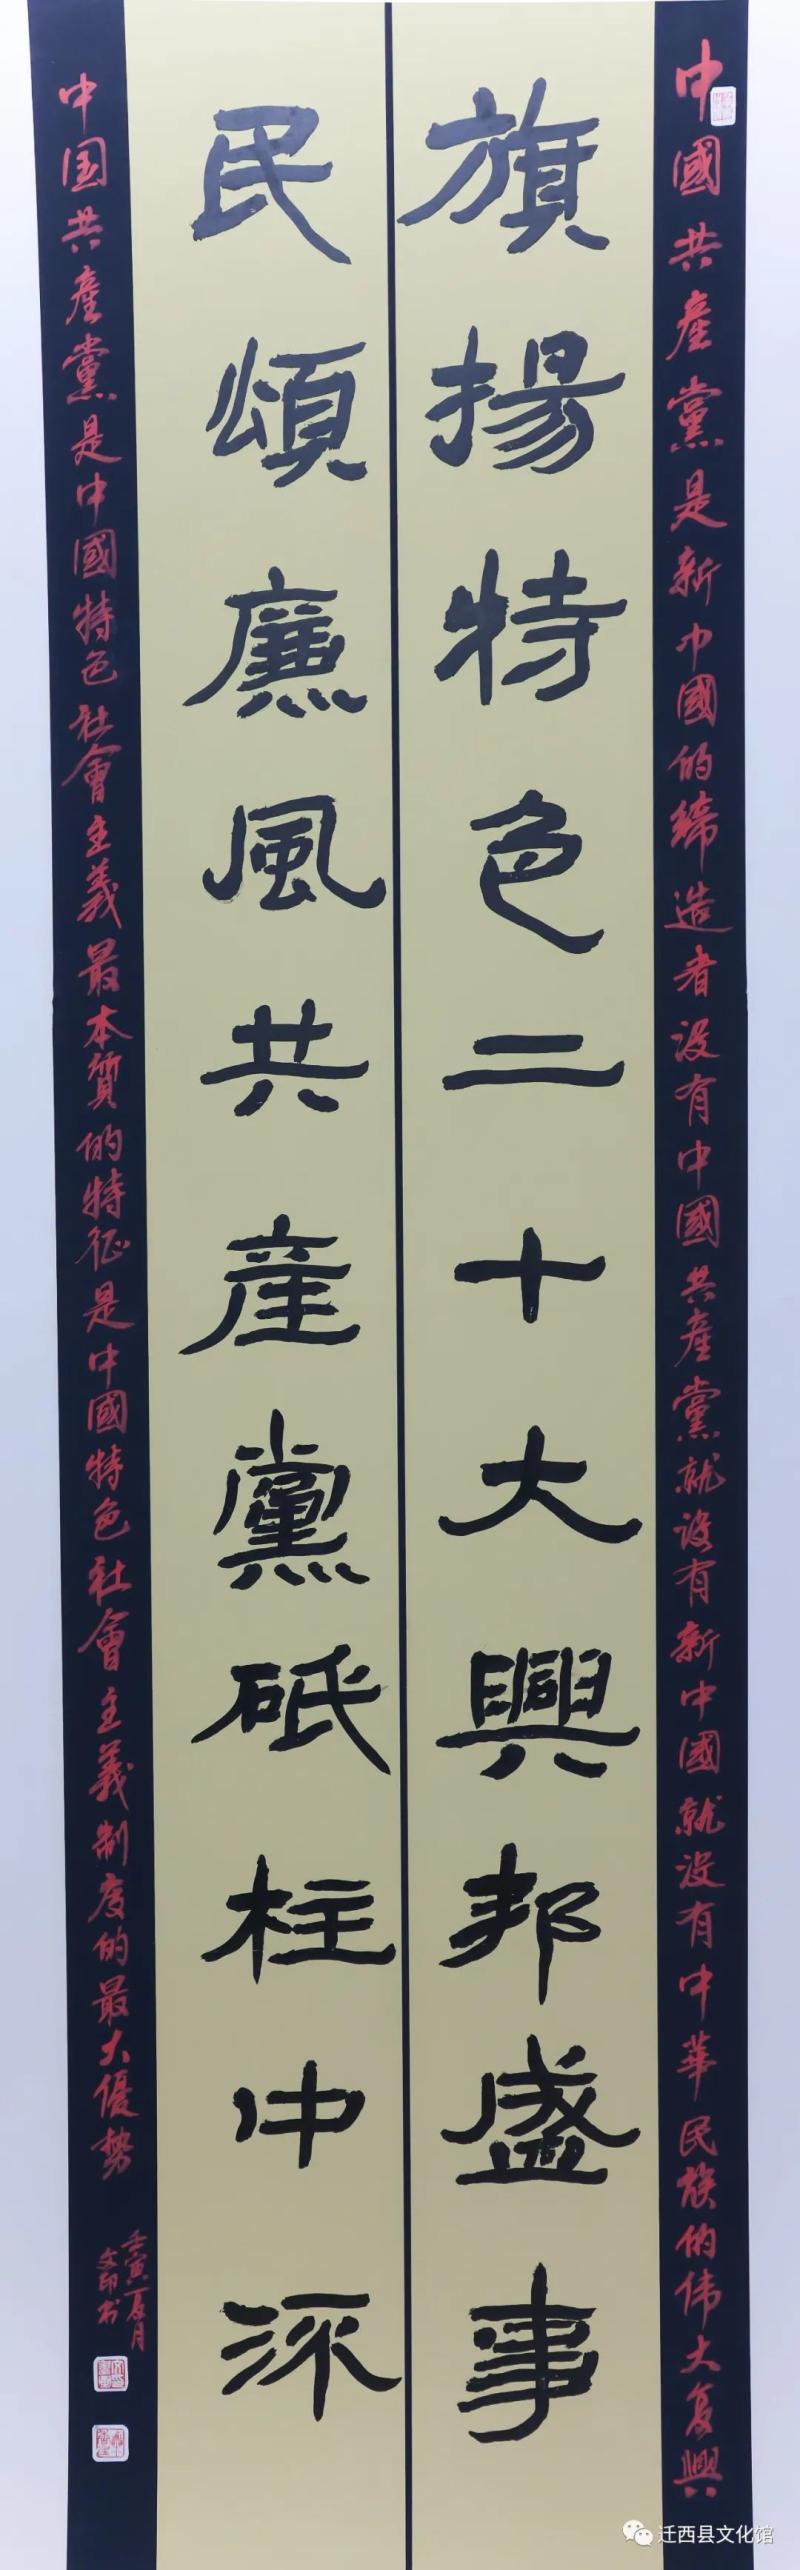 中國共產黨是新中國的締造者没有中國共產黨就没有新中國就没有中華民族的伟大复興
旗揚特色二十大興邦盛事
民頌廉風共產黨砥柱中流
中国共產黨是中國特色社會主義最本質的特征是中國特色社會主義制度的最大優势
壬寅夏月
文印书
迁西县文化馆